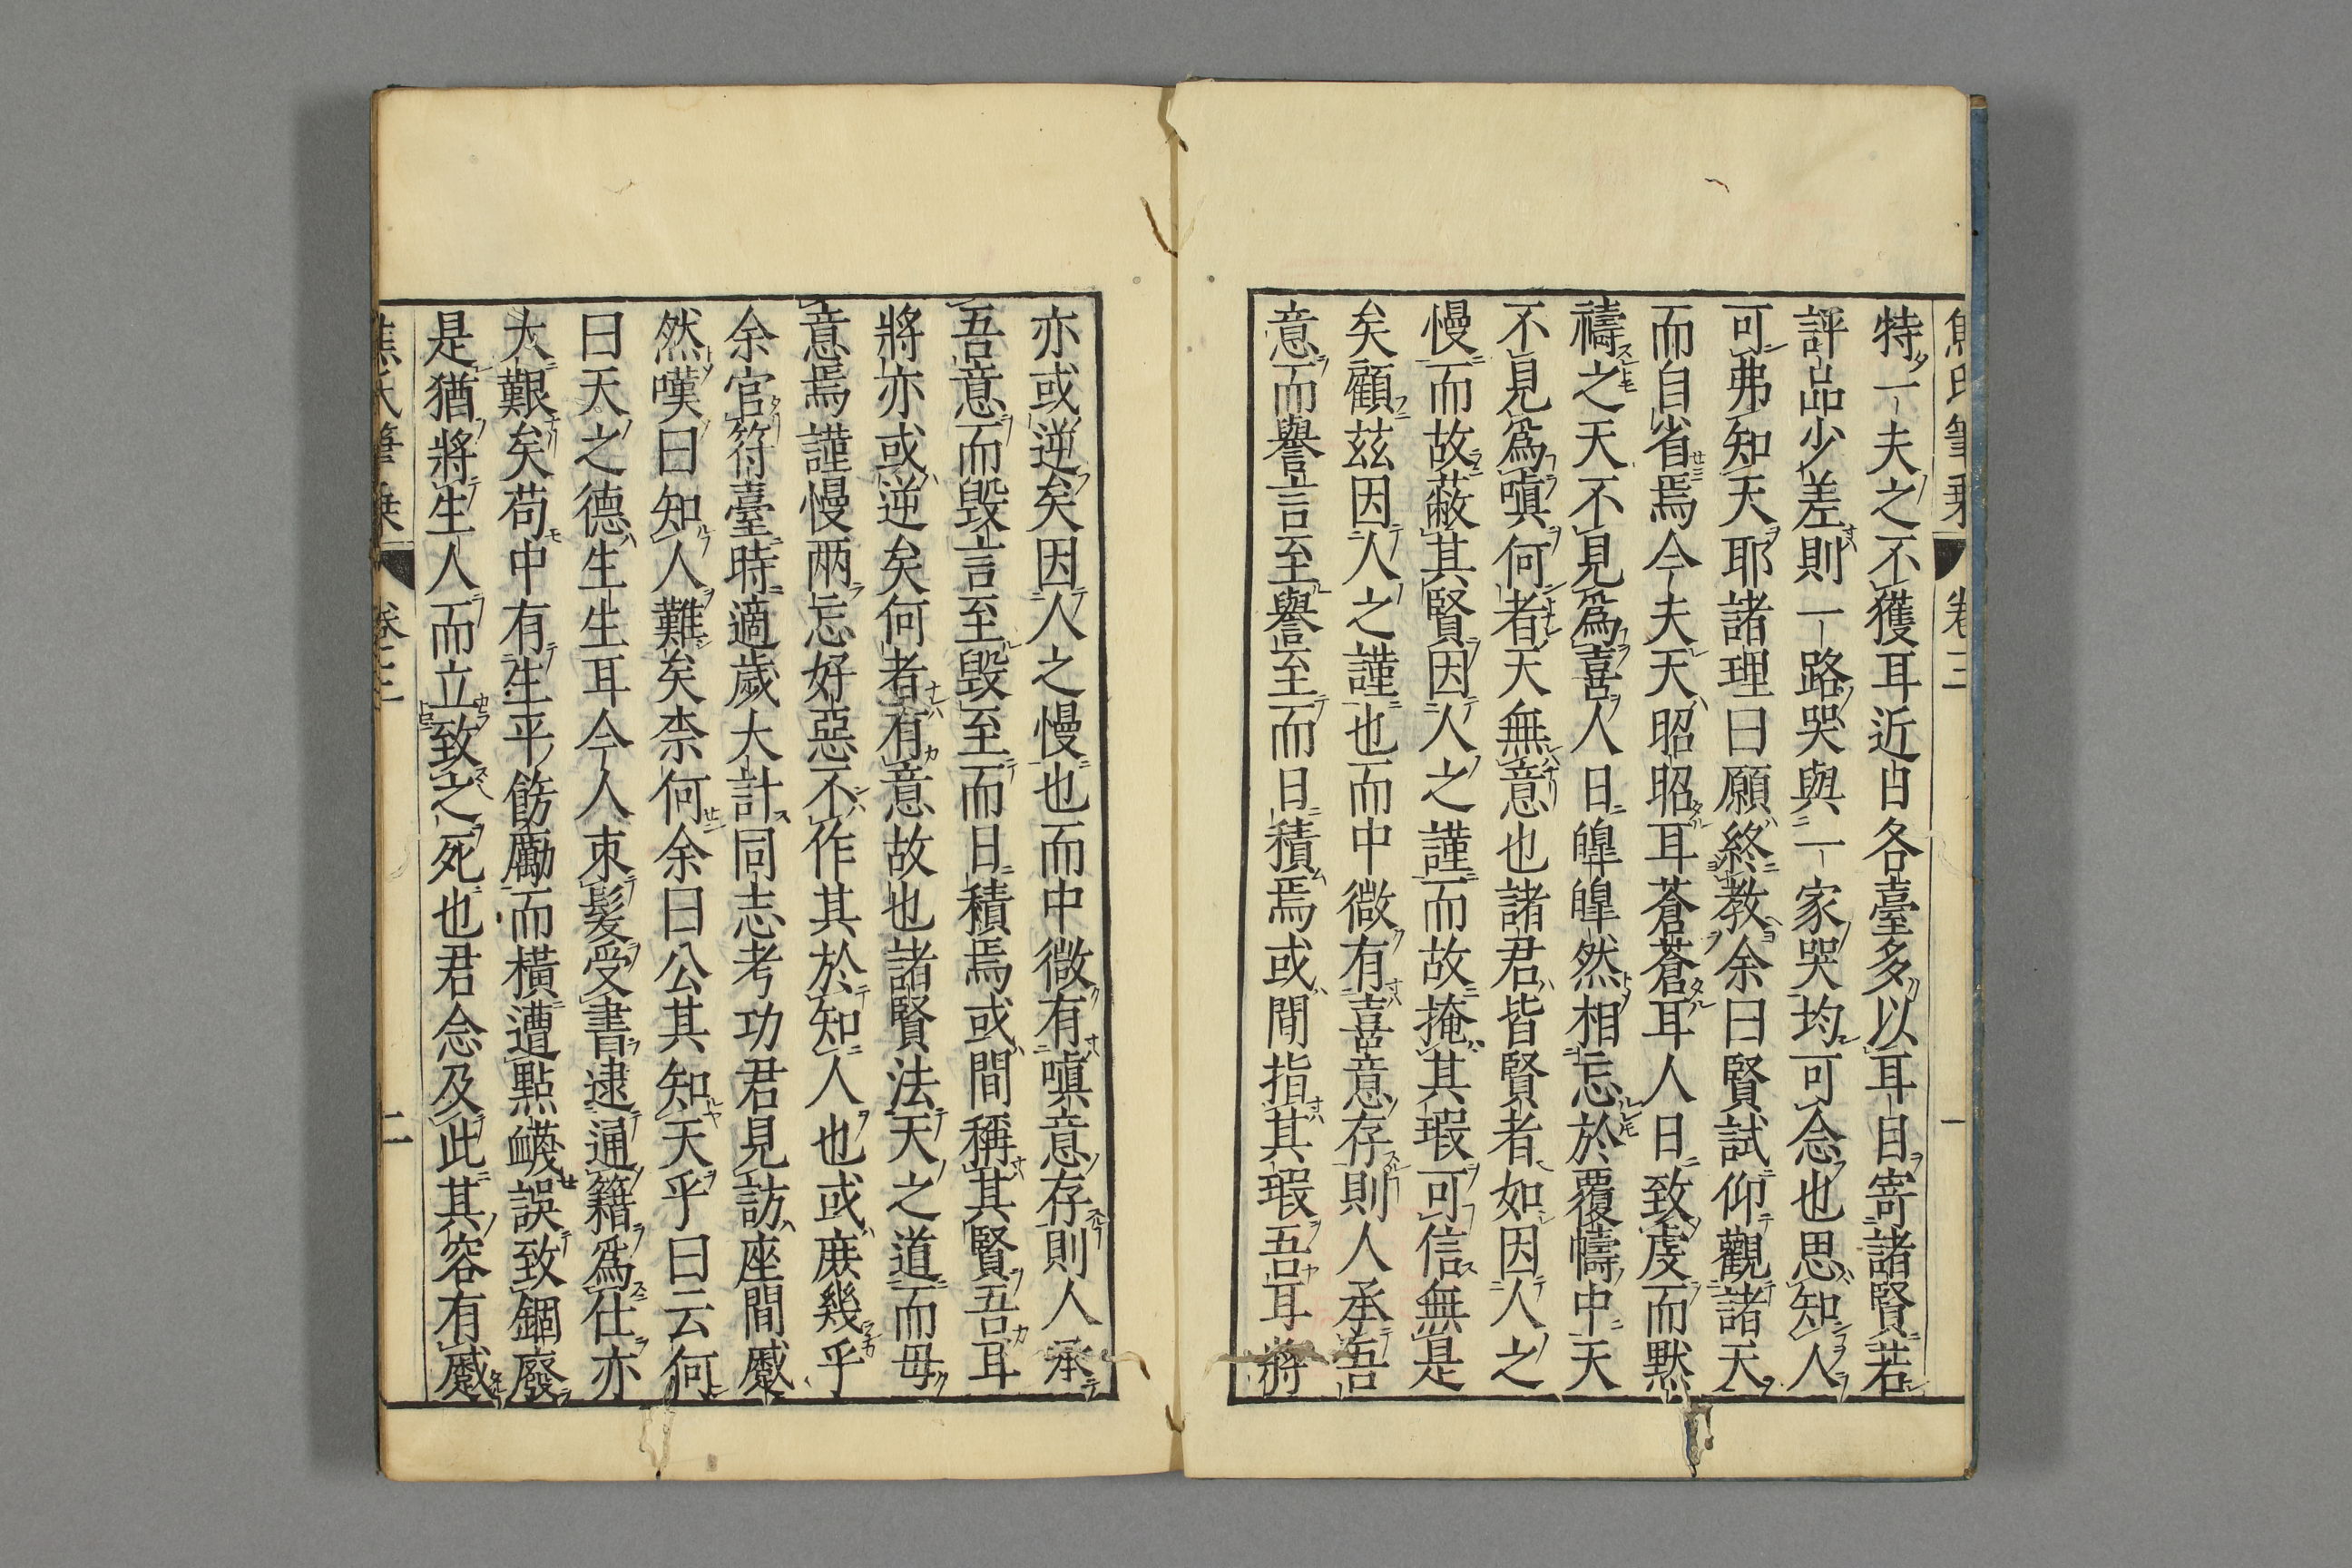 特一夫之不獲耳近日各臺多以耳目寄諸賢若
評品少差則一路哭與一家哭均可念也思知人
可弗知天耶諸理曰願終教余曰賢試仰觀諸天
而自省焉今夫天昭昭耳蒼蒼耳人日致虔而默
禱之天不見爲喜人日皥皥然相忘於覆幬中天
不見爲嗔何者天無意也諸君皆賢者如因人之
慢而故蔽其賢因人之謹而故掩其瑕可信無是
矣顧茲因人之謹也而中微有喜意存則人承吾
意而譽言至譽至而日積焉或間指其瑕吾耳將
亦或逆矣因人之慢也而中微有嗔意存則人承
吾意而毀言至毀至而日積焉或間稱其賢吾耳
將亦或逆矣何者有意故也諸賢法天之道而毋
意焉謹慢兩忘好惡不作其於知人也或庶幾乎
余官符臺時適歲大計同志考功君見訪座間蹙
然嘆曰知人難矣柰何余曰公其知天乎曰云何
曰天之德生生耳今人束髮受書逮通籍爲仕亦
大艱矣苟中有生平飭勵而橫遭點衊誤致錮廢
是猶將生人而立致之死也君念及此其容有蹙
卷三
一
卷三
二